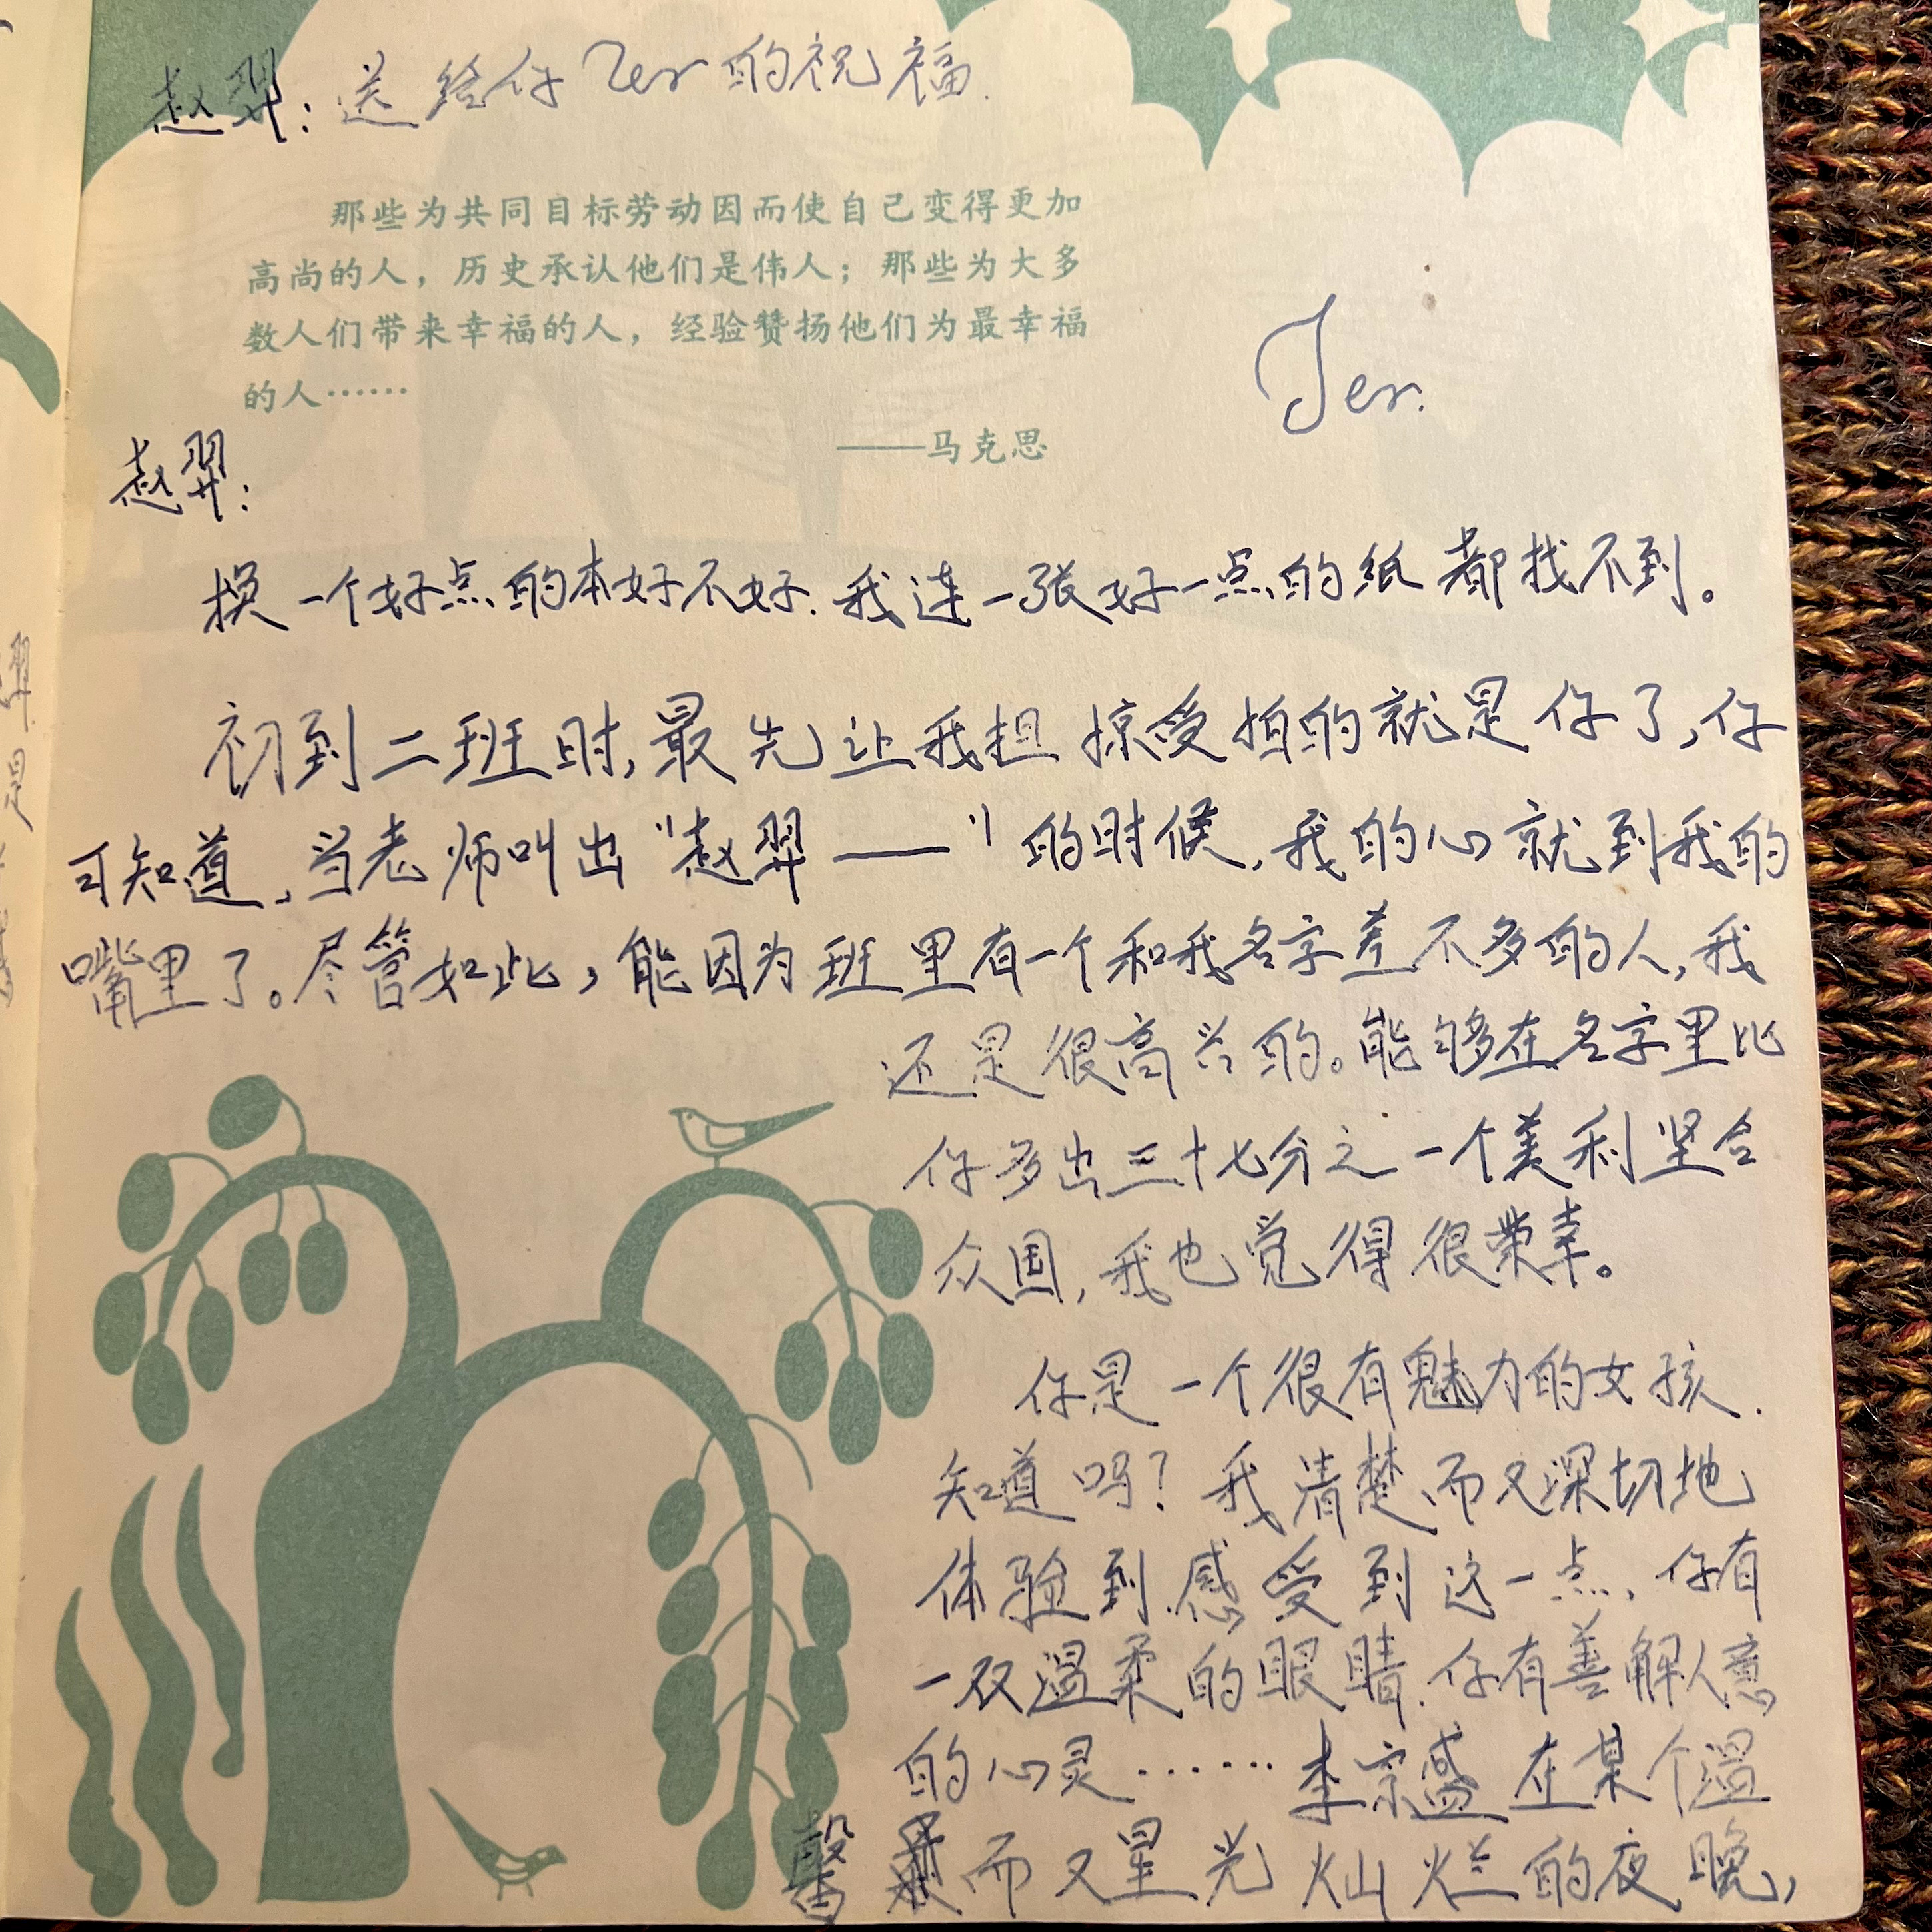 赵羿：送给你 Jer 的祝福.
那些为共同目标劳动因而使自己变得更加
高尚的人，历史承认他们是伟人；那些为大多
数人们带来幸福的人，经验赞扬他们为最幸福
的人……
——马克思
Jer.
赵羿：
换一个好点的本好不好.我连一张好一点的纸都找不到。
初到二班时,最先让我担惊受怕的就是你了,你
可知道、当老师叫出“赵羿——”的时候,我的心就到我的
嘴里了。尽管如此,能因为班里有一个和我名字差不多的人,我
还是很高兴的。能够在名字里比
你多出三十七分之一个美利坚合
众国,我也觉得很荣幸。
你是一个很有魅力的女孩.
知道吗？我清楚而又深切地
体验到.感受到这一点、你有
一双温柔的眼睛.你有善解人意
的心灵……李宗盛在某个温
馨 而又星光灿烂的夜晚,